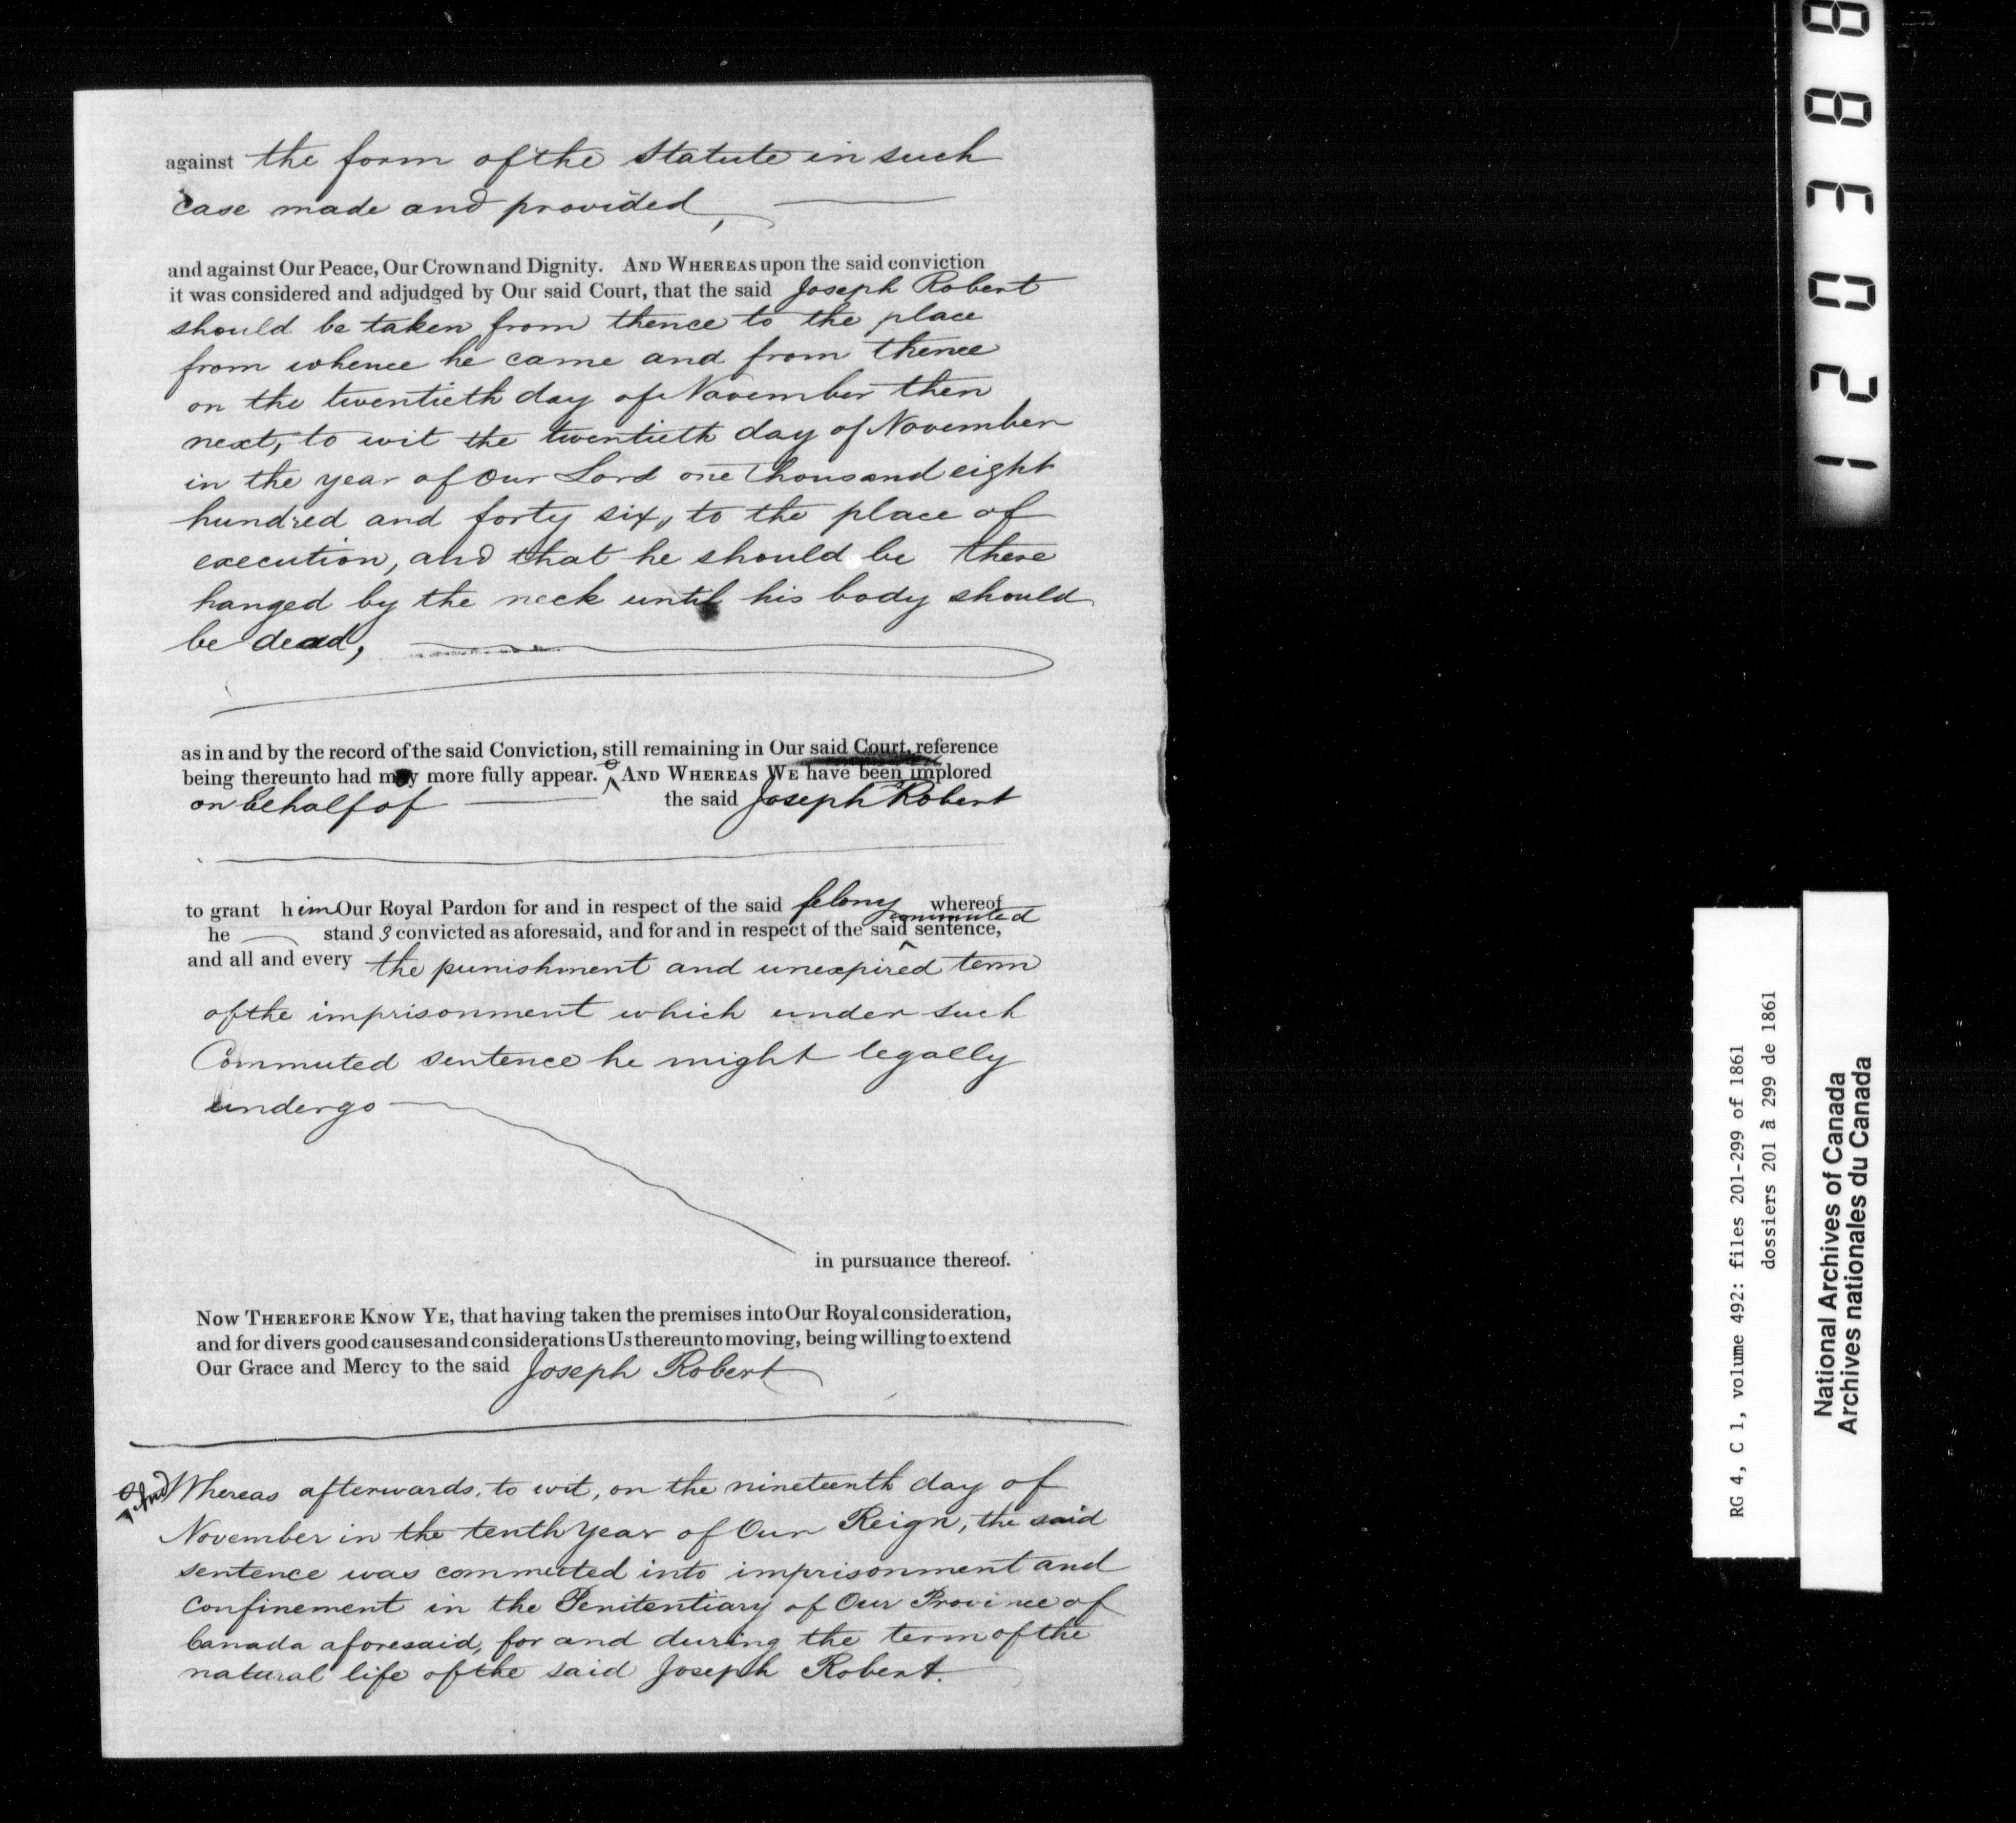 against the form of the Statute in such
case made and provided,
and against Our Peace, Our Crown and Dignity. AND WHEREAS upon the said conviction
it was considered and adjudged by Our said Court, that the said Joseph Robert
should be taken from thence to the place
from whence he came and from thence
on the twentieth day of November then
next, to wit the twentieth day of November
in the year of Our Lord one thousand eight
hundred and forty six, to the place of
execution, and that he should be there
hanged by the neck until his body should
be dead,
as in and by the record of the said Conviction, still remaining in Our said Court, reference
being thereunto had may more fully appear. AND WHEREAS WE have been implored
on behalf of the said Joseph Robert
to grant him Our Royal Pardon for and in respect of the said felony whereof
commuted
he stands convicted as aforesaid, and for and in respect of the said ^ sentence,
and all and every the punishment and unexpired term
of the imprisonment which under such
Commuted sentence he might legally
undergo
in pursuance thereof.
NOW THEREFORE KNOW YE, that having taken the premises into Our Royal consideration,
and for divers good causes and considerations Us thereunto moving, being willing to extend
Our Grace and Mercy to the said Joseph Robert
And Whereas afterwards, to wit, on the nineteenth day of
November in the tenth Year of Our Reign, the said
sentence was commuted into imprisonment and
Confinement in the Penitentiary of Our Province of
Canada aforesaid, for and during the term of the
natural life of the said Joseph Robert.
RG 4, C 1, volume 492: files 201-299 of 1861
dossiers 201 à 299 de 1861
National Archives of Canada
Archives nationales du Canada